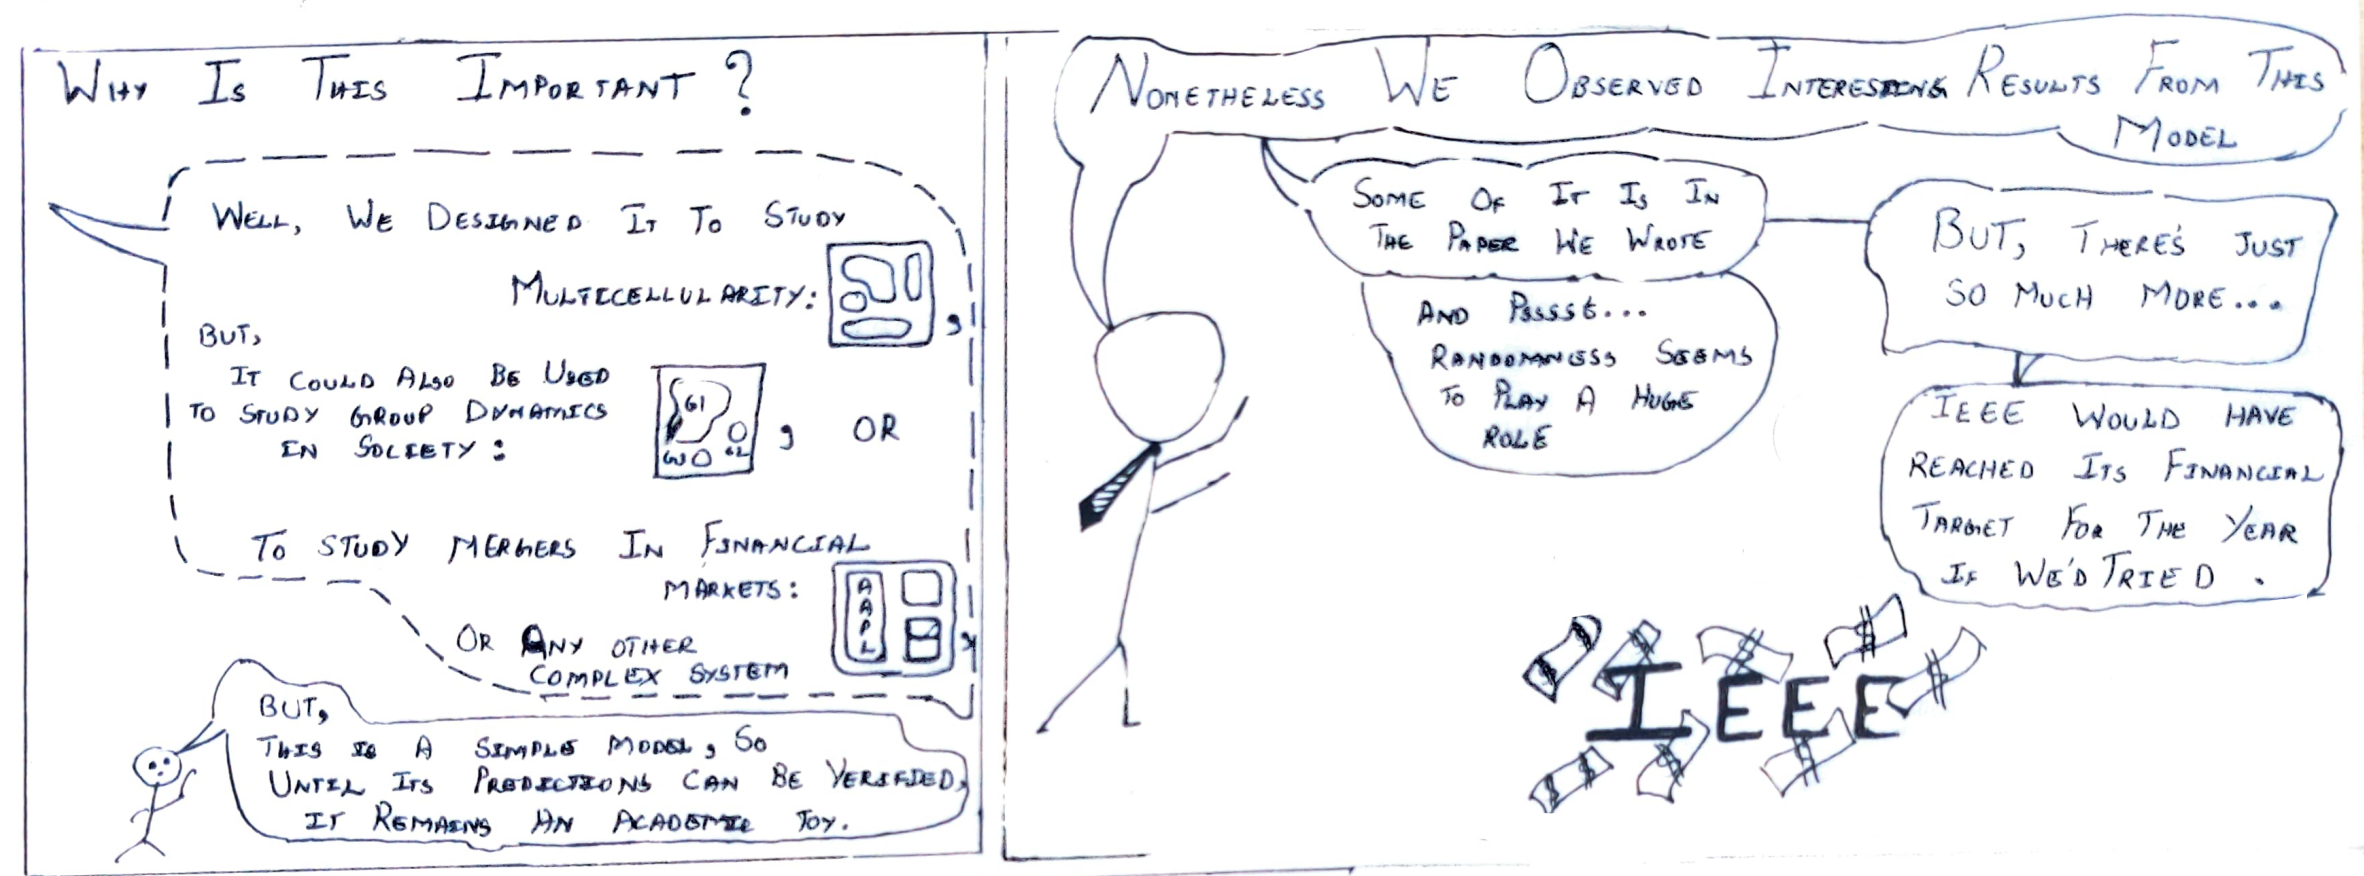 WHY IS THIS IMPORTANT?
WELL, WE DESIGNED IT TO STUDY
MULTICELLULARITY: ,
BUT,
IT COULD ALSO BE USED
TO STUDY GROUP DYNAMICS
IN SOCIETY: , OR
G1
G3 G2
TO STUDY MERGERS IN FINANCIAL
MARKETS: ,
AAPL
OR ANY OTHER
COMPLEX SYSTEM
BUT,
THIS IS A SIMPLE MODEL, SO
UNTIL ITS PREDICTIONS CAN BE VERIFIED,
IT REMAINS AN ACADEMIC TOY.
NONETHELESS WE OBSERVED INTERESTING RESULTS FROM THIS
MODEL
SOME OF IT IS IN
THE PAPER WE WROTE
AND PSSSST...
RANDOMNESS SEEMS
TO PLAY A HUGE
ROLE
BUT, THERE'S JUST
SO MUCH MORE...
IEEE WOULD HAVE
REACHED ITS FINANCIAL
TARGET FOR THE YEAR
IF WE'D TRIED.
IEEE